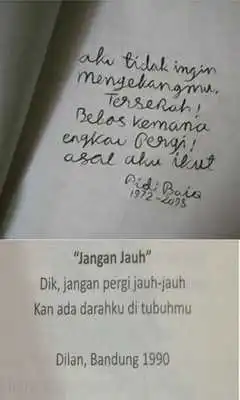 aku tidak ingin
mengekangmu.
Terserah!
Bebas kemana
engkau Pergi!
asal aku ikut
Pidi Baiq
1972-2098
"Jangan Jauh"
Dik, jangan pergi jauh-jauh
Kan ada darahku di tubuhmu
Dilan, Bandung 1990